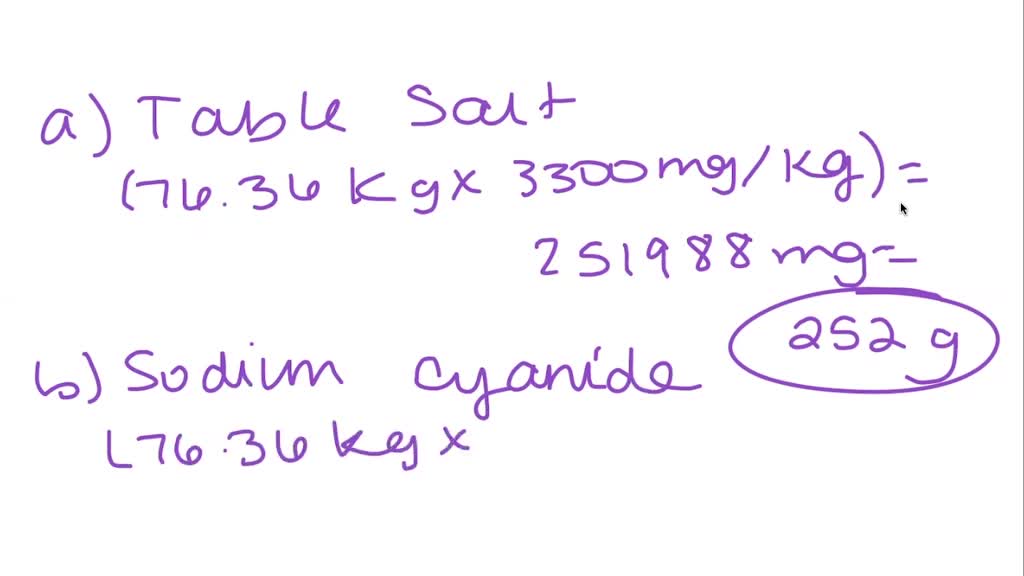 a) Table Salt
(76.36 Kg x 3300 mg/kg) =
251988 mg =
252 g
b) Sodium cyanide
(76.36 kg x